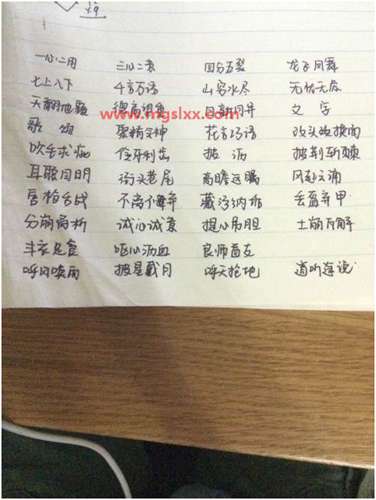 一心二用 三心二意 四分五裂 龙飞凤舞
七上八下 千言万语 山穷水尽 无忧无虑
天翻地覆 德高望重 日新月异 文字
www.mgslxx.com
歌颂 聚精会神 花言巧语 改头换面
吹毛求疵 伶牙俐齿 披沥 披荆斩棘
耳聪目明 街头巷尾 高瞻远瞩 风起云涌
唇枪舌战 藏污纳垢 丢盔弃甲
分崩离析 诚心诚意 提心吊胆 土崩瓦解
丰衣足食 呕心沥血 良师益友
呼风唤雨 披星戴月 呼天抢地 道听途说